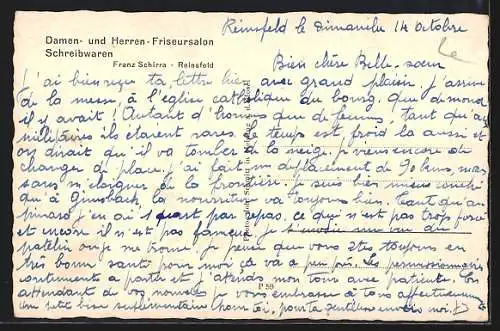 Reinsfeld le Dimanche 14 Octobre
Damen- und Herren-Friseursalon
Schreibwaren
Franz Schirra - Reinsfeld
Bien chère Belle-sœur
J'ai bien reçu ta lettre hier avec grand plaisir. J'arrive
de la messe, à l'église catholique du bourg, que de monde
il y avait! Autant d'hommes que de femmes, tant qu'au
militaires ils étaient rares. le temps est froid la aussi et
on dirait qu'il va tomber de la neige. Je viens encore de
changer de place. J'ai fait un déplacement de 90 kms, mais
sans m'élargir de la frontière. Je suis bien mieux couché
qu'à la nourriture va toujours bien. Tant qu'au
pinard j'en ai 1 quart par repas, ce qui n'est pas trop forcé
et encore il n'est pas fameux. Je t'envoie une vue du
patelin ou je me trouve. Je pense que vous êtes toujours en
très bonne santé pour moi ça va à peu près. Les permissionnaires
continuent a partir et j'attends mon tour avec patience. En
attendant de vos nouvelles je vous embrasse à tous affectueusement
un petit bise supplémentaire
P 59